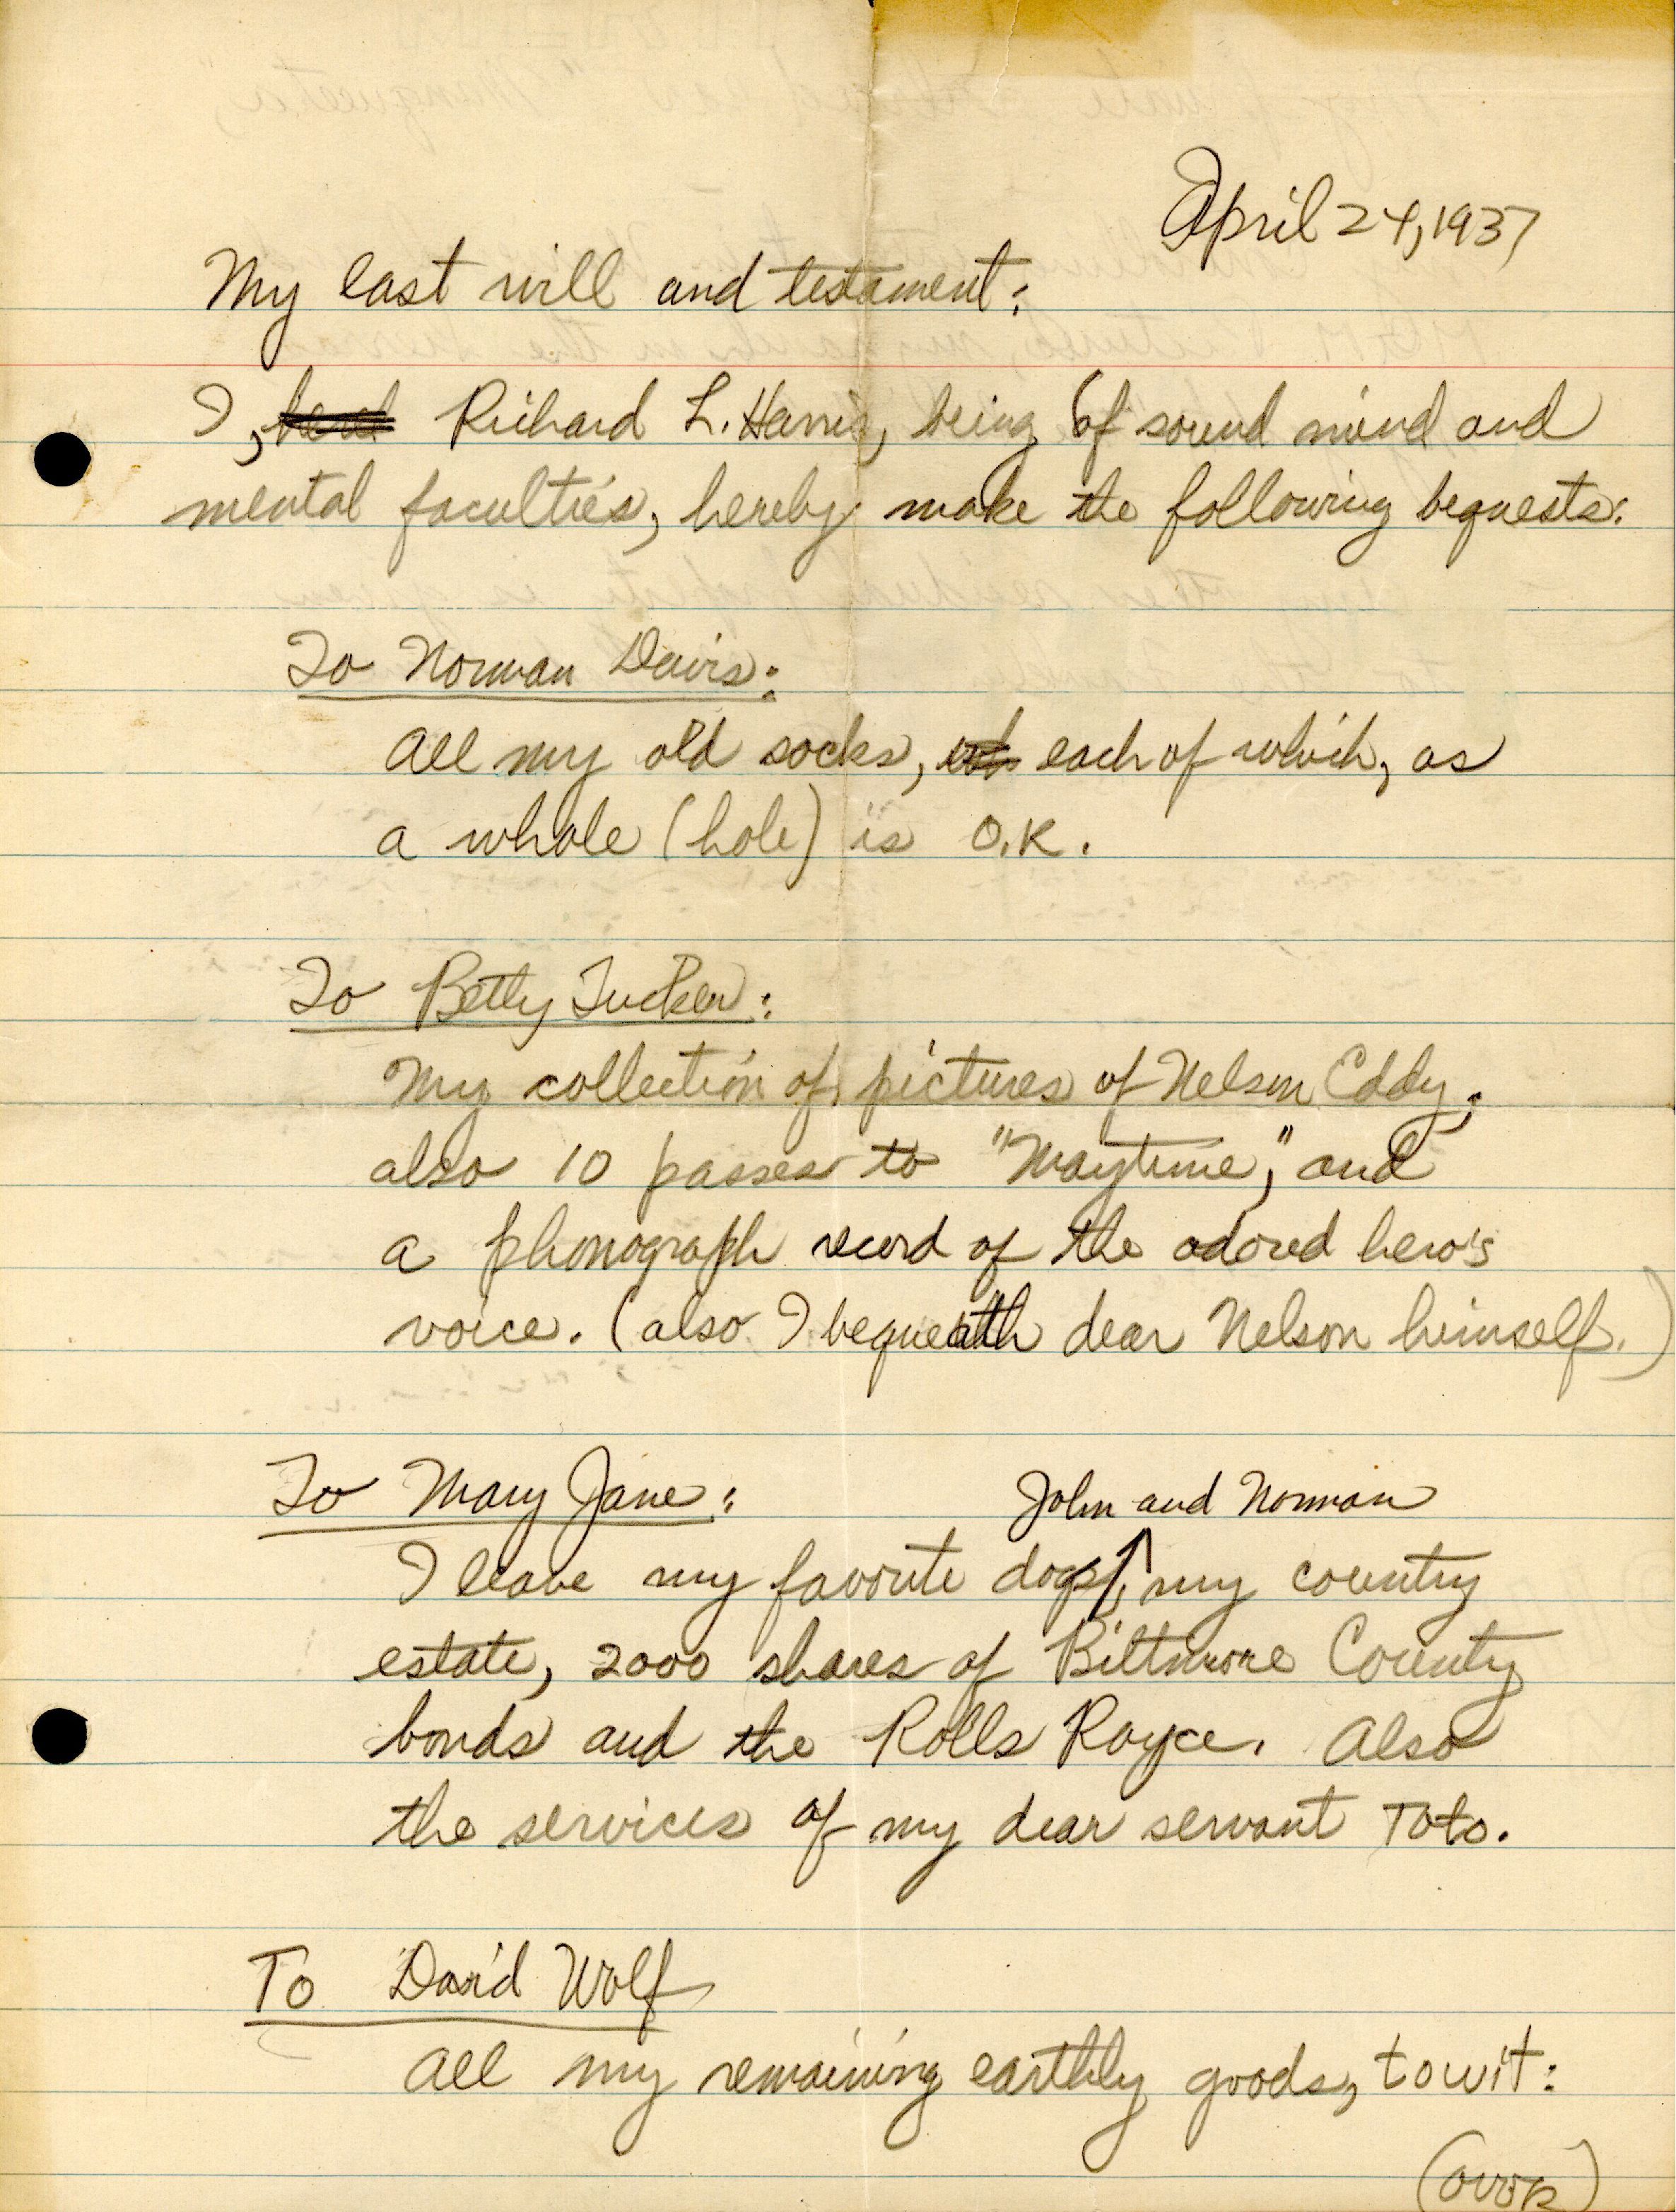 April 24, 1937
My last will and testament:
I, Richard L. Harris, being of sound mind and
mental faculties, hereby make the following bequests:
To Norman Davis:
All my old socks, each of which, as
a whole (hole) is O.K.
To Betty Tucker:
My collection of pictures of Nelson Eddy;
also 10 passes to "Maytime," and
a phonograph record of the adored hero's
voice. (also I bequeath dear Nelson himself.)
To Mary Jane:
John and Norman
I leave my favorite dogs, my country
estate, 2000 shares of Biltmore County
bonds and the Rolls Royce. Also
the services of my dear servant Toto.
To David Wolf
All my remaining earthly goods, towit:
(over)